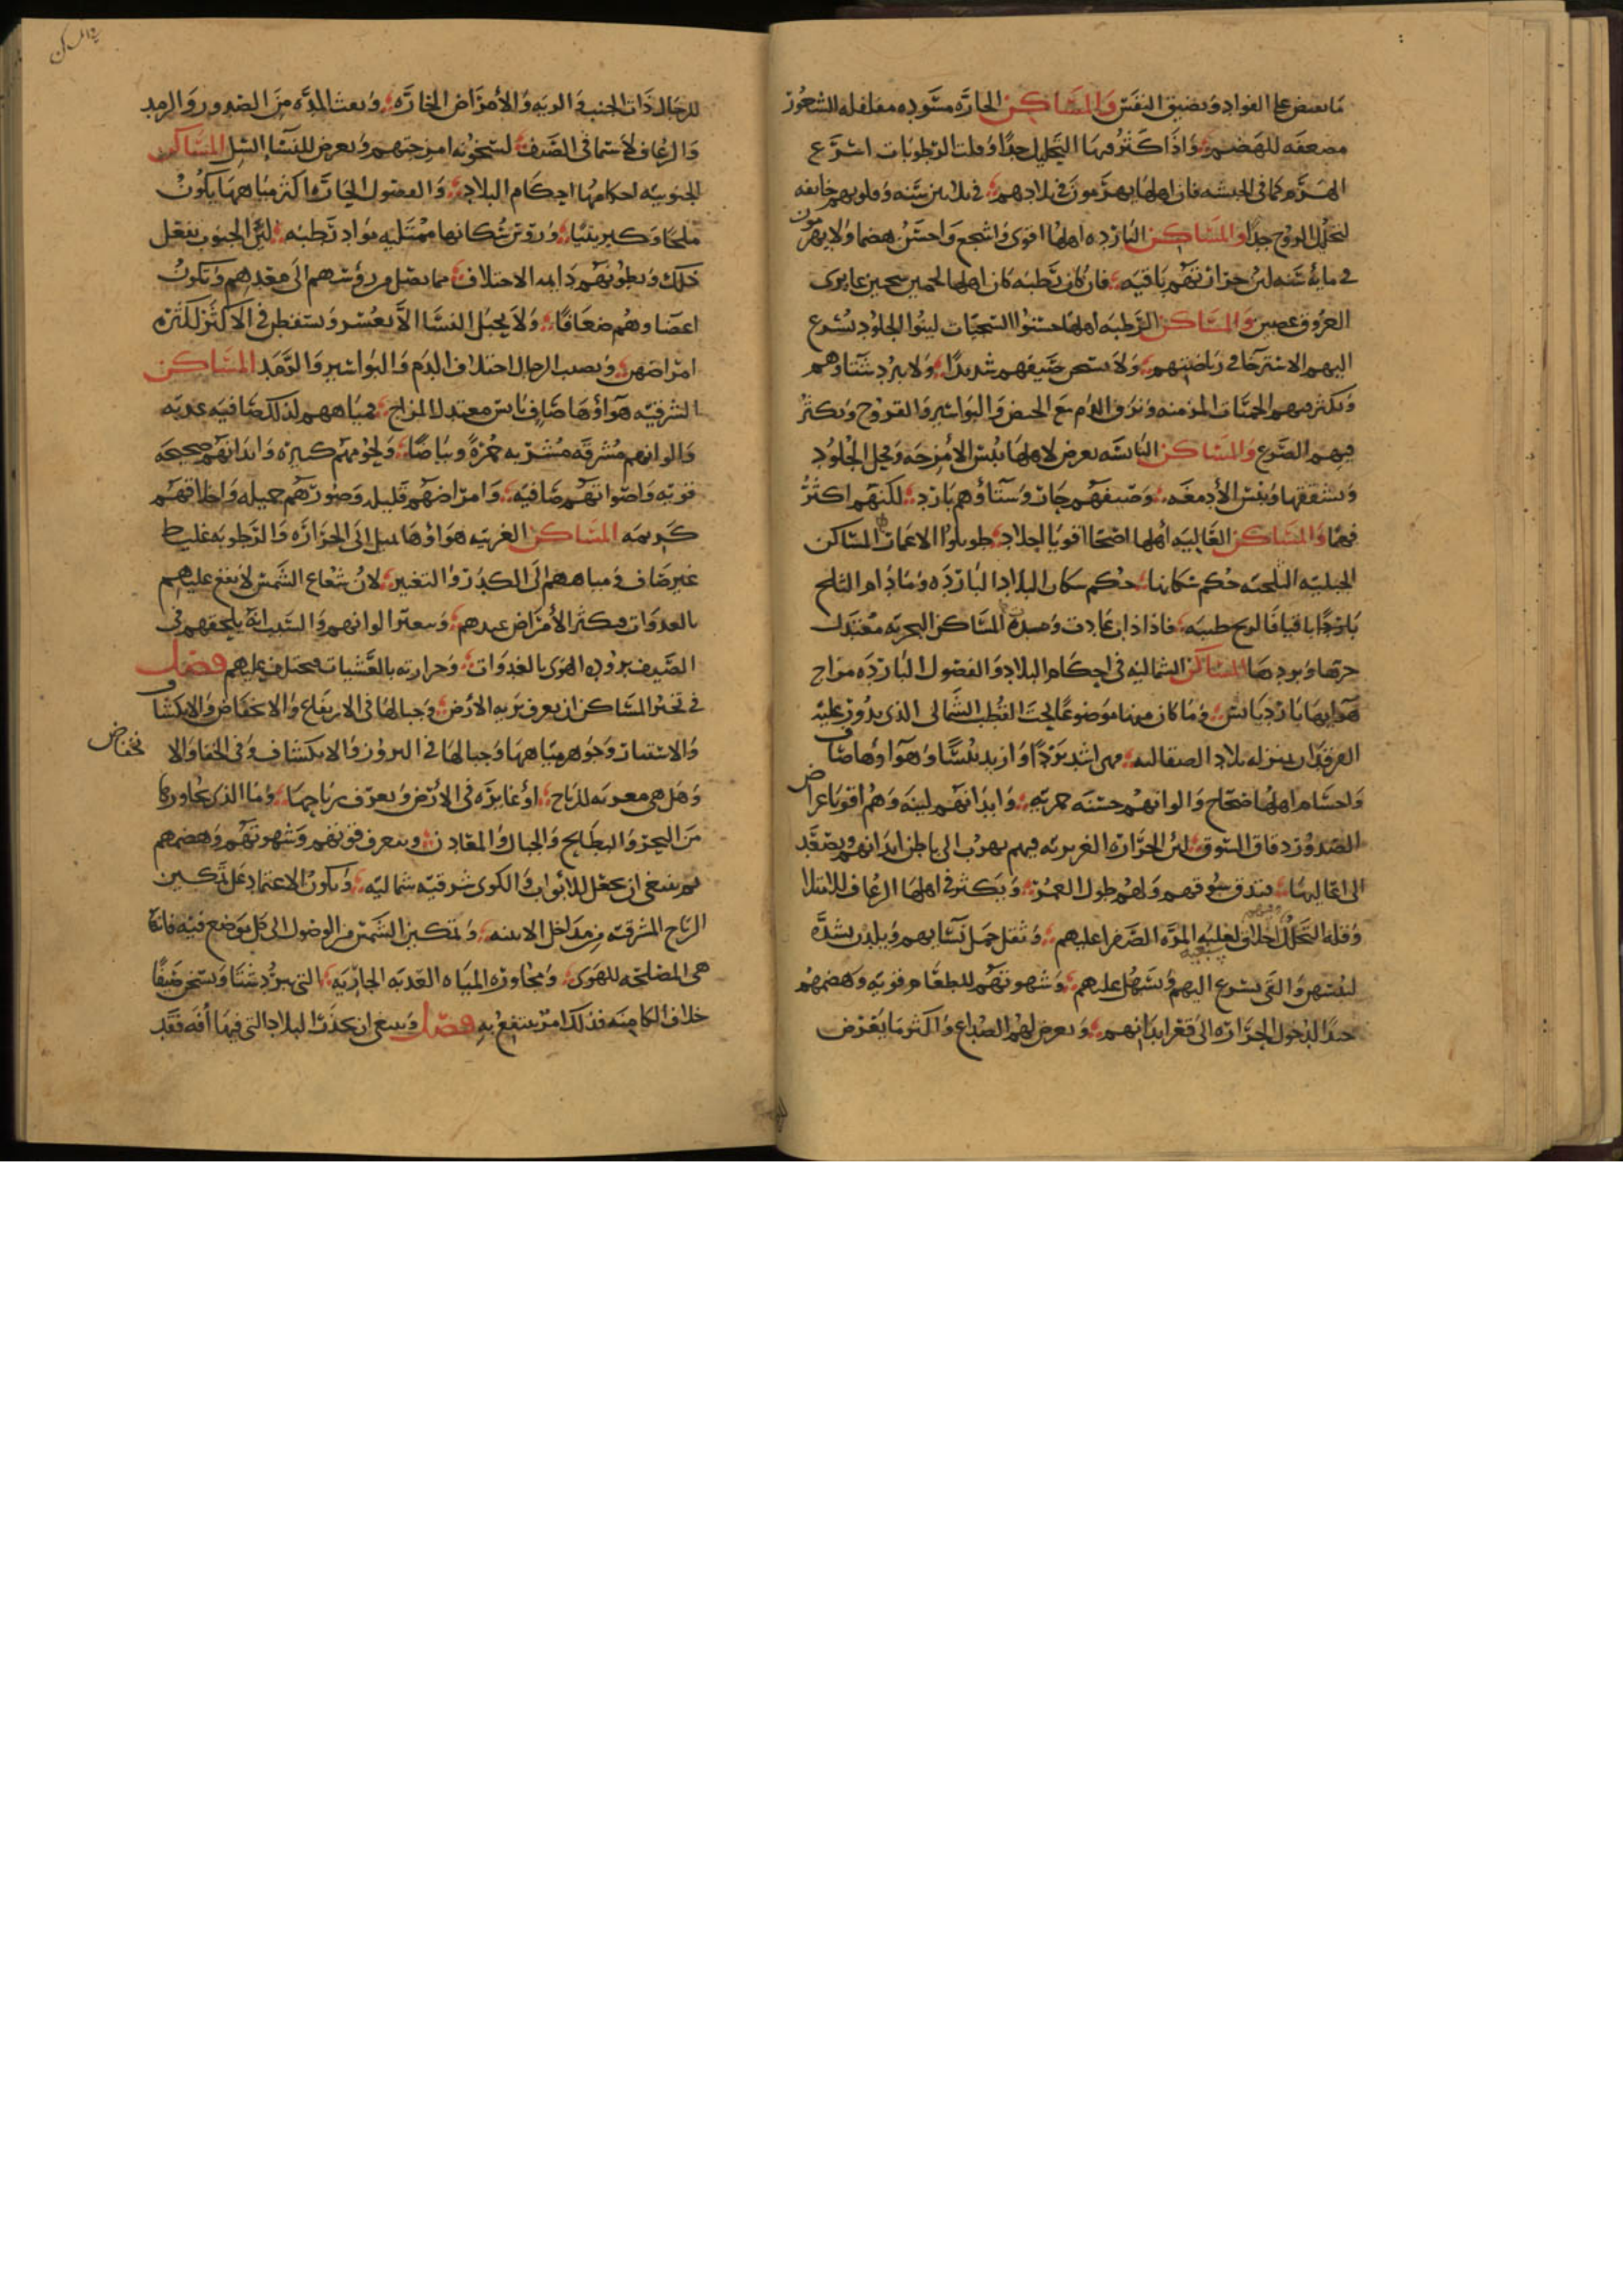 ما يقبض على الفواد ويضيق النفس والمساكن الحارة مسودة مفلفلة الشعور
مضعفة للهضم واذا كثر فيها التحليل جدا وقلت الرطوبات اسرع
الهرم كما فى الحبشه فان اهلها يهرمون فى بلادهم فى ثلثين سنه وقلوبهم خايفه
لتحلل الروح جدا والمساكن الباردة اهلها اقوى واشجع واحسن هضما ولا يهرمون
فى مائة سنه لئن حرارتهم باقيه فان كان رطبه كان اهلها لحميين شحميين غايرى
العروق غضين والمساكن الرطبه اهلها حسنوا السحنات لينوا الجلود يسرع
اليهم الاسترخا فى رياضتهم ولا يسخن صيفهم شديدا ولا يبرد شتاوهم
ويكثر فيهم الحميات المزمنه ونزف الدم مع الحيض والبواسير والقروح ويكثر
فيهم الصرع والمساكن اليابسه يعرض لاهلها يبس الامزجه وقحل الجلود
وتشققها ويبس الادمغه وصيفهم حار وستاؤهم بارد لكنهم اكثر
فهما والمساكن العاليه اهلها اصحا اقويا اجلاد طويلوا الاعمار المساكن
الجبليه الثلجيه حكم سكانها حكم سكان البلاد الباردة وما دام الثلج
باردا باقيا فالريح طيبه فاذا ذاب عادت ومده المساكن البحريه معتدل
حرها وبردها المساكن الشماليه فى احكام البلاد والفصول الباردة مزاج
هوايها بارد يابس وما كان منها موضوعا تحت القطب الشمالى الذى يدور عليه
الفرقدان بمنزله بلاد الصقالبه فهى اشد بردا وازيد يبسا وهواوها صاف
واجسام اهلها صحاح والوانهم حسنه حمريه وابدانهم لينه وهم اقويا عراض
الصدور دقاق السوق لئن الحرارة الغريزيه فيهم تهرب الى باطن ابدانهم ويصعد
الى اعاليها فتدق سوقهم ولهم طول العمر ويكثر فى اهلها الرعاف للامتلا
وقله التحلل اخلاقهم سبعيه لغلبه المرة الصفرا عليهم وثقل حمل نسايهم ويلدن بشدة
ليبسهن والقى يسرع اليهم ويسهل عليهم وشهوتهم للطعام قويه وهضمهم
جيدا لدخول الحرارة الى قعر ابدانهم ويعرض لهم الصداع واكثر ما يعرض
للرجال ذات الجنب والريه والامراض الحادة ونفث المده من الصدور والرمد
والرعاف لاسيما فى الصيف لسخونه امزجتهم ويعرض للنسا السل المساكن
الجنوبيه احكامها احكام البلاد والفصول الحاره اكثر مياهها يكون
ملحا وكبريتيا وروس سكانها ممتليه مواد رطبه لئن الجنوب تفعل
ذلك وبطونهم دايمه الاختلاف مما يصل من رؤسهم الى معدهم ويكون
اعضاوهم ضعافا ولا يحبل النسا الا بعسر ويسقطن فى الاكثر لكثره
امراضهن ويصيب الرجال اختلاف الدم والبواسير والرمد المساكن
الشرقيه هواؤها صاف يابس معتدل المزاج ومياههم لذلك صافيه عذبه
والوانهم مشرقه مشربه حمرة وبياضا ولحومهم كثيرة وابدانهم صحيحه
قويه واصواتهم صافيه وامراضهم قليله وصورتهم جميله واخلاقهم
كريمه المساكن الغربيه هواؤها يميل الى الحرارة والرطوبه غليظ
غير صاف ومياههم الى الكدر والتغير لان شعاع الشمس لا يقع عليهم
بالغدوات فيكثر الامراض عندهم وتتغير الوانهم والسبب انه يلحقهم فى
الصيف برودة الهوى بالغدوات وحرارته بالعشيات فيختلف عليهم فصل
فى تخير المساكن ان يعرف تربه الارض وحالها فى الارتفاع والانخفاض والانكشاف
والاستتار وجوهر مياهها وحالها فى البروز والانكشاف وفى الخفا والا
نخفاض
وهل هى معرضه للرياح او غايرة فى الارض ويعرف رياحها وما الذى يجاورها
من البحر والبطايح والجبال والمعادن ويتعرف قوتهم وشهوتهم وهضمهم
ثم ينبغى ان يجعل للابواب والكوى شرقيه شماليه ويكون الاعتماد على تمكين
الرياح المشرقيه من مداخل الابنيه وتمكين الشمس من الوصول الى كل موضع فيه فانها
هى المصلحه للهوى ومجاورة المياه العذبه الجاريه التى تبرد شتا وتسخن صيفا
خلاف الكامنه فذلك امر ينتفع به فصل وينبغى ان يحذر البلاد التى فيها افه فقد